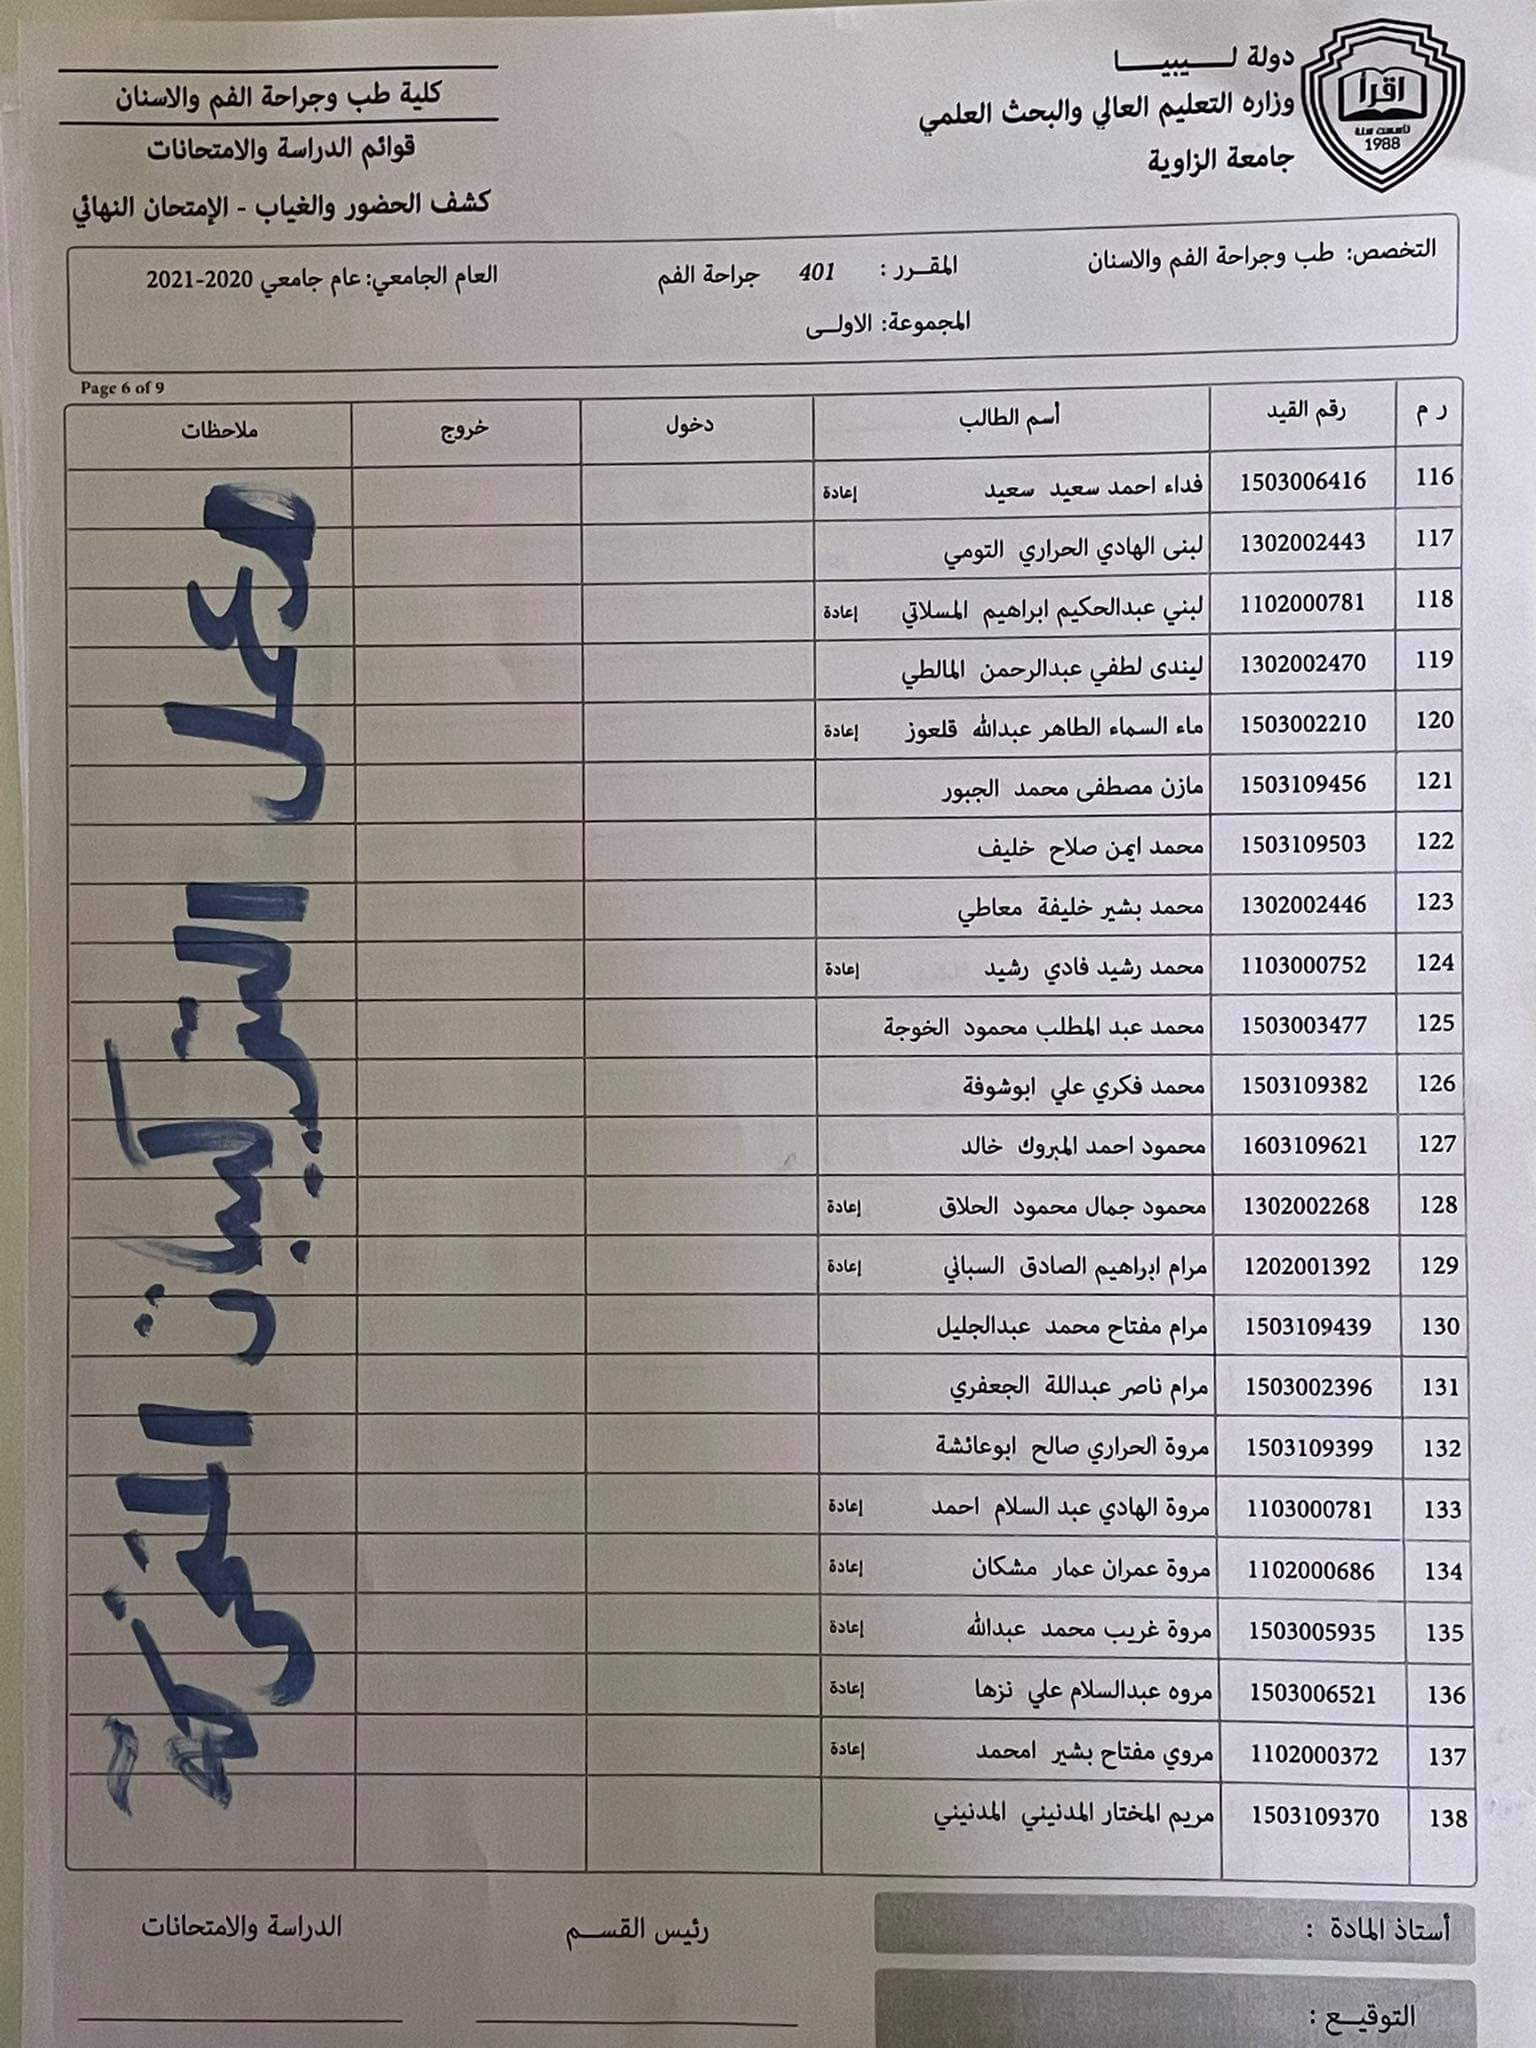 دولة لـــيبيـــا
وزاره التعليم العالي والبحث العلمي
جامعة الزاوية
اقرأ
تأسست سنة
1988
كلية طب وجراحة الفم والاسنان
قوائم الدراسة والامتحانات
كشف الحضور والغياب - الإمتحان النهائي
التخصص: طب وجراحة الفم والاسنان المقــرر : 401 جراحة الفم العام الجامعي: عام جامعي 2020-2021
المجموعة: الاولــى
Page 6 of 9
ر م رقم القيد أسم الطالب دخول خروج ملاحظات
116 1503006416 فداء احمد سعيد سعيد إعادة
117 1302002443 لبنى الهادي الحراري التومي
118 1102000781 لبني عبدالحكيم ابراهيم المسلاتي إعادة
119 1302002470 ليندى لطفي عبدالرحمن المالطي
120 1503002210 ماء السماء الطاهر عبدالله قلعوز إعادة
121 1503109456 مازن مصطفى محمد الجبور
122 1503109503 محمد ايمن صلاح خليف
123 1302002446 محمد بشير خليفة معاطي
124 1103000752 محمد رشيد فادي رشيد إعادة
125 1503003477 محمد عبد المطلب محمود الخوجة
126 1503109382 محمد فكري علي ابوشوفة
127 1603109621 محمود احمد المبروك خالد
128 1302002268 محمود جمال محمود الحلاق إعادة
129 1202001392 مرام ابراهيم الصادق السباني إعادة
130 1503109439 مرام مفتاح محمد عبدالجليل
131 1503002396 مرام ناصر عبداللة الجعفري
132 1503109399 مروة الحراري صالح ابوعائشة
133 1103000781 مروة الهادي عبد السلام احمد إعادة
134 1102000686 مروة عمران عمار مشكان إعادة
135 1503005935 مروة غريب محمد عبدالله إعادة
136 1503006521 مروه عبدالسلام علي نزها إعادة
137 1102000372 مروي مفتاح بشير امحمد إعادة
138 1503109370 مريم المختار المدنيني المدنيني
معمل التركيبات المتحركة
أستاذ المادة : رئيس القســم الدراسة والامتحانات
التوقيــع :